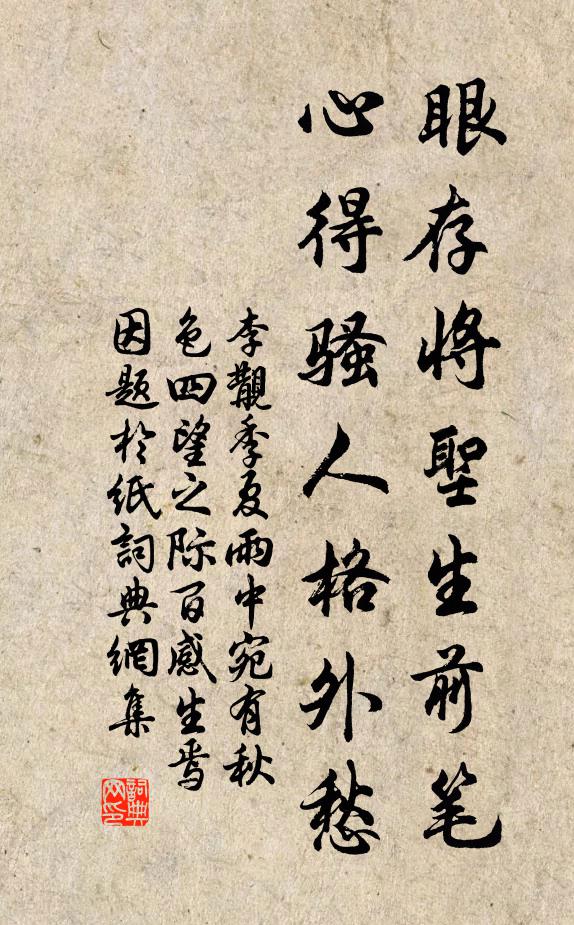 眼存将聖生前笔
心得骚人格外愁
李觏季夏雨中宛有秋
色四望之际百感生焉
因题於纸詞典網集
詞典网印